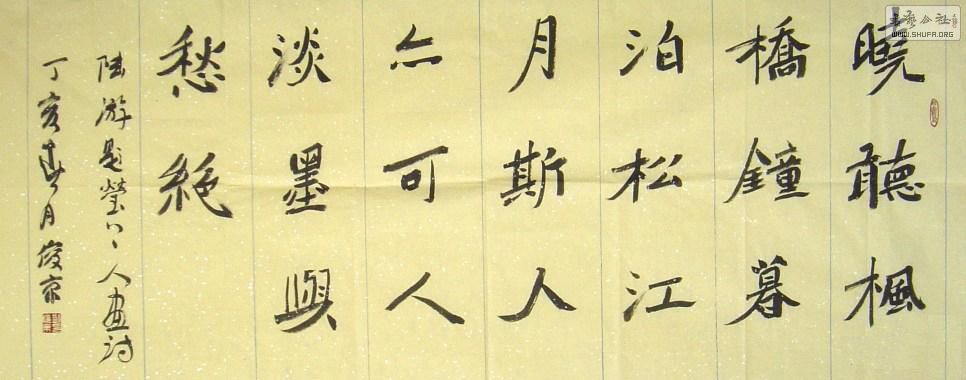 曉聽楓
橋鐘暮
泊松江
月斯人
亦可人
淡墨與
愁絕
陸游題瑩上人画詩
丁亥春月俊京
書藝公社
WWW.SHUFA.ORG